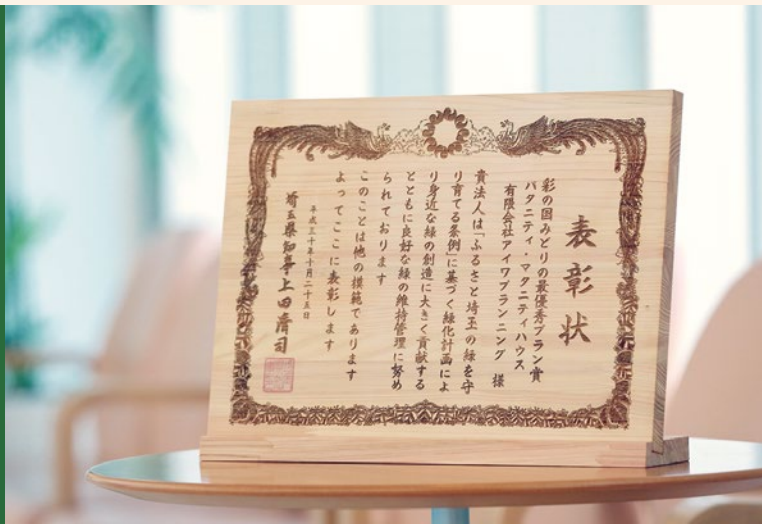 表彰状
彩の国みどりの最優秀プラン賞
パタニティ・マタニティハウス
有限会社アイワプランニング 様
貴法人は「ふるさと埼玉の緑を守
り育てる条例」に基づく緑化計画によ
り身近な緑の創造に大きく貢献する
とともに良好な緑の維持管理に努め
られております
このことは他の模範であります
よってここに表彰します
平成三十年十月二十五日
埼玉県知事上田清司